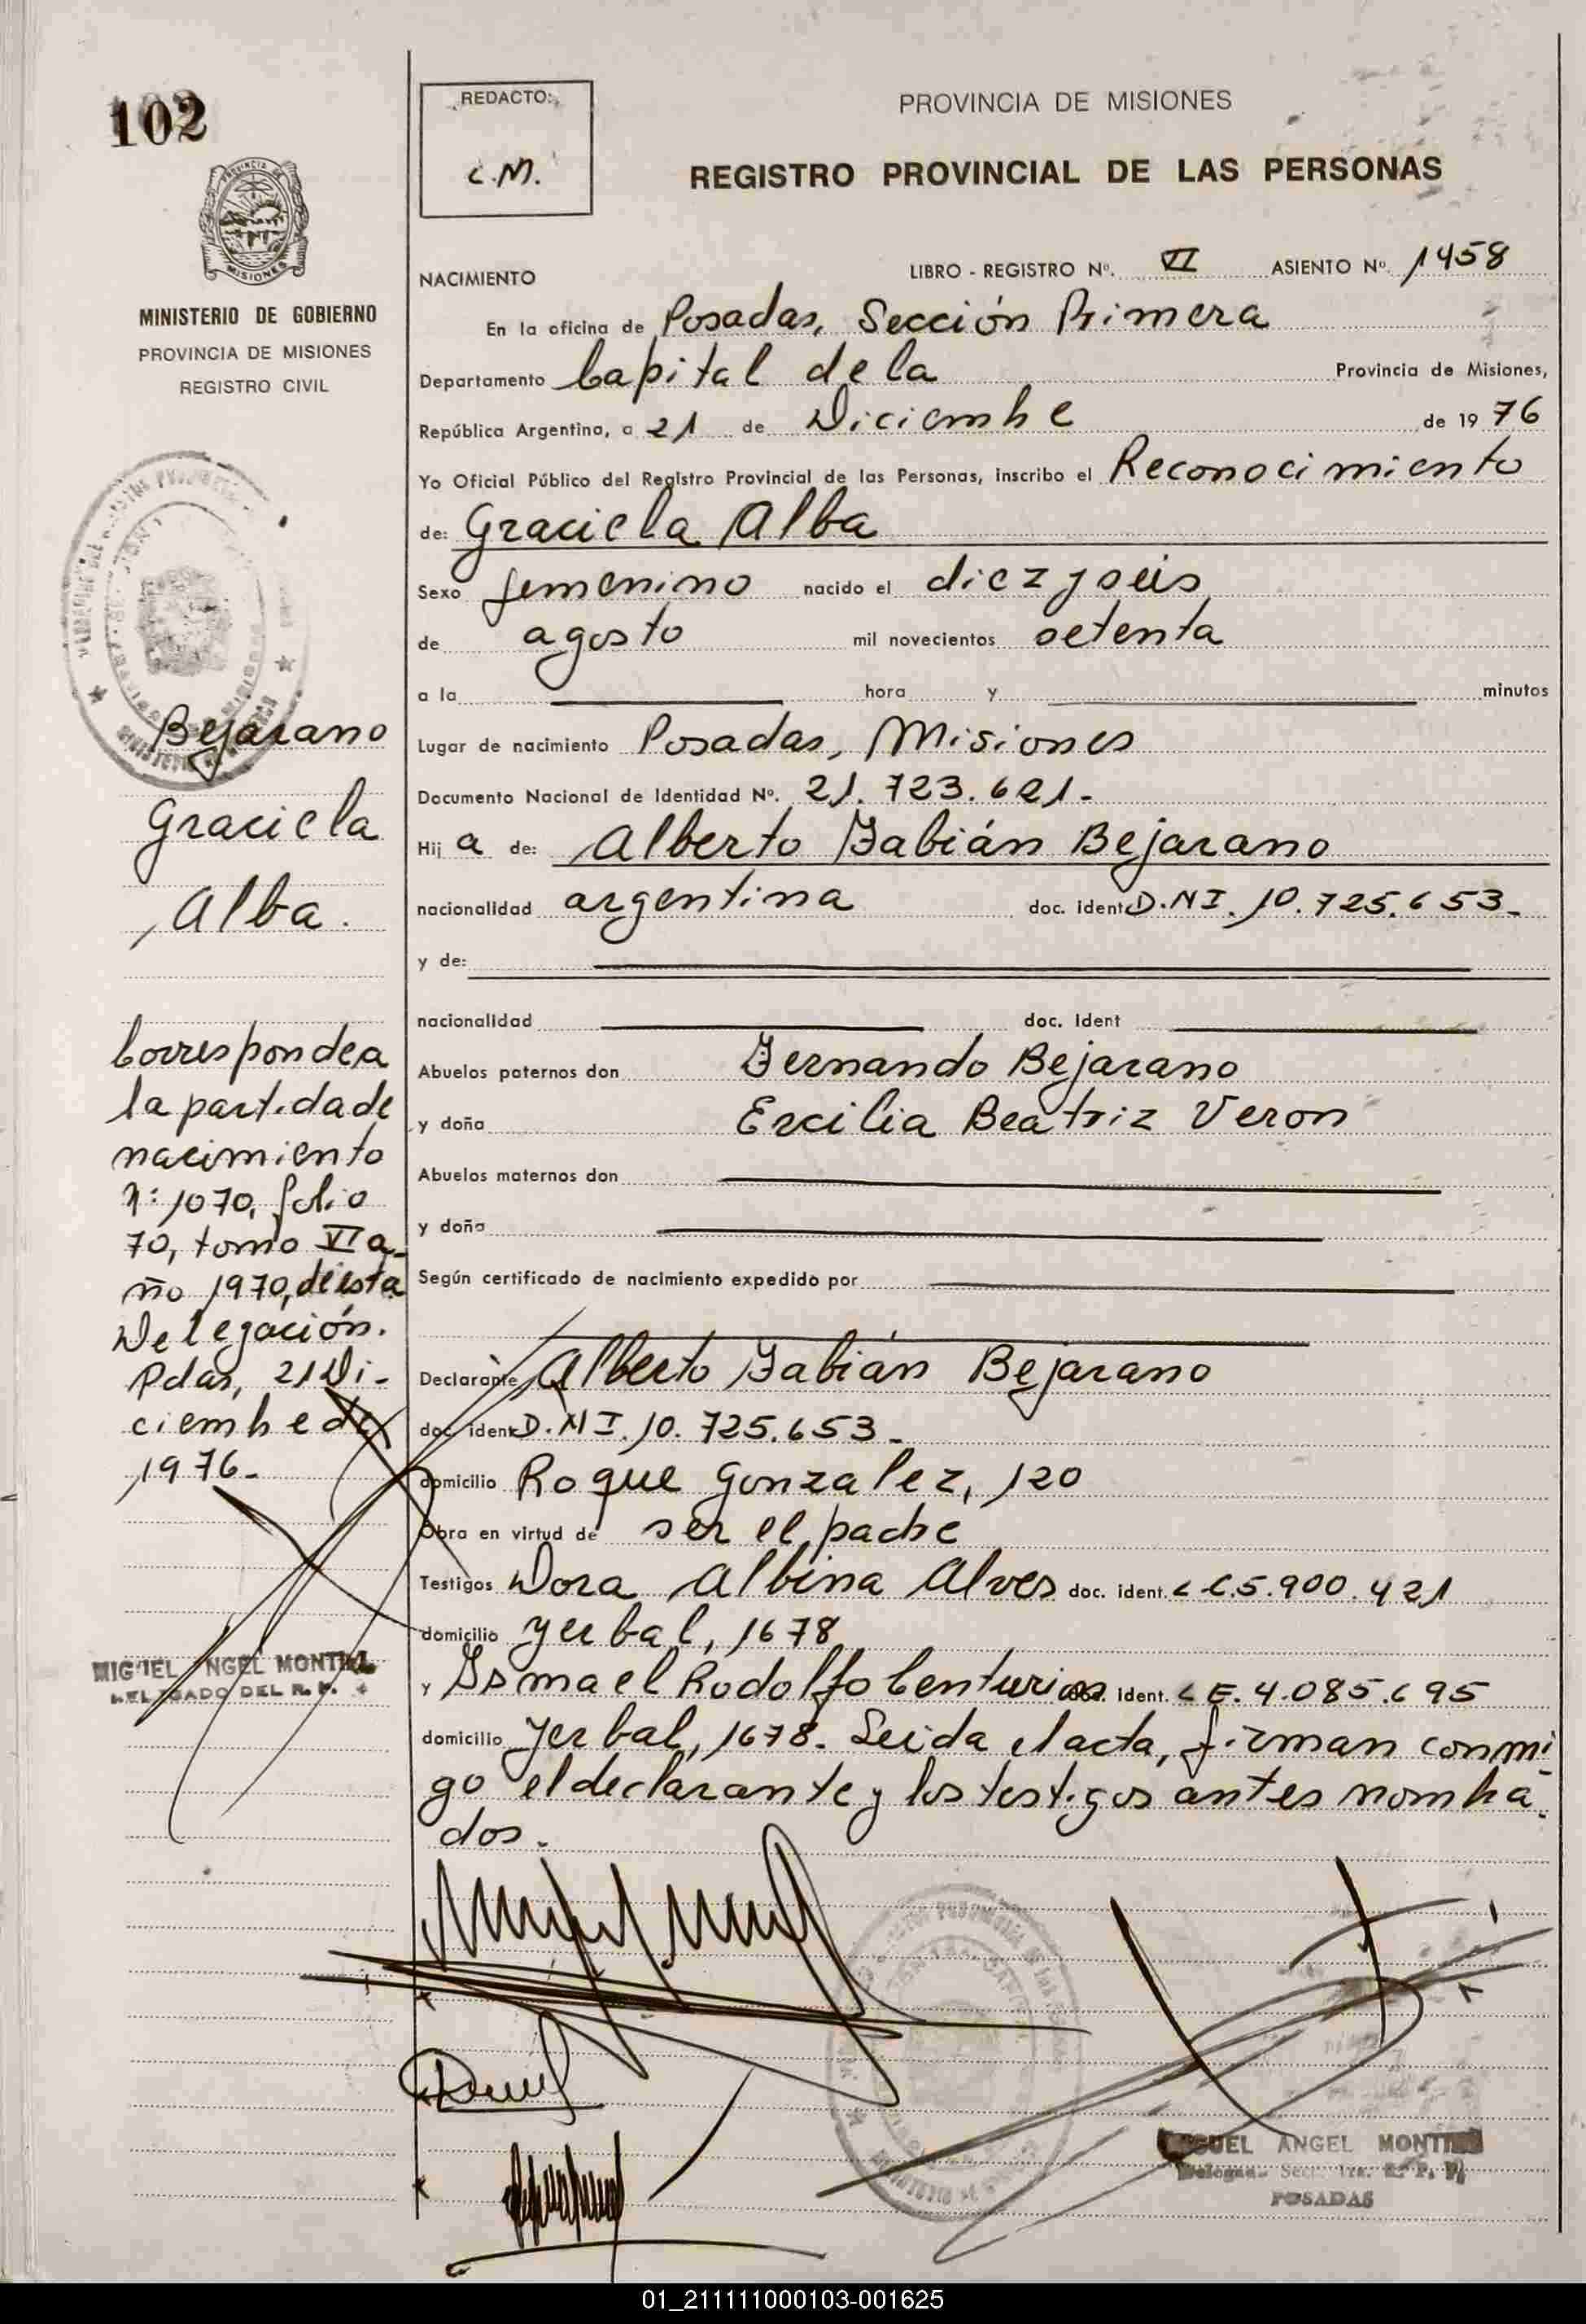 102
REDACTO:
C.M.
PROVINCIA DE MISIONES
REGISTRO PROVINCIAL DE LAS PERSONAS
MISIONES
MINISTERIO DE GOBIERNO
PROVINCIA DE MISIONES
REGISTRO CIVIL
NACIMIENTO
LIBRO - REGISTRO Nº. VI ASIENTO Nº. 1458
En la oficina de Posadas, Sección Primera
Departamento Capital de la Provincia de Misiones,
República Argentina, a 21 de Diciembre de 1976
Yo Oficial Público del Registro Provincial de las Personas, inscribo el Reconocimiento
de: Graciela Alba
Sexo femenino nacido el diez y seis
de agosto mil novecientos setenta
a la hora y minutos
Lugar de nacimiento Posadas, Misiones
Documento Nacional de Identidad Nº. 21.723.621.-
Hij a de: Alberto Fabián Bejarano
nacionalidad argentina doc. ident D.NI. 10.725.653.-
y de:
nacionalidad doc. Ident
Abuelos paternos don Fernando Bejarano
y doña Ercilia Beatriz Veron
Abuelos maternos don
y doña
Según certificado de nacimiento expedido por
Declarante Alberto Fabián Bejarano
doc ident D.NI. 10.725.653.-
domicilio Roque Gonzalez, 120
Obra en virtud de ser el padre
Testigos Dora Albina Alves doc. ident. L.C.5.900.421
domicilio Yerbal, 1678
y Ismael Rodolfo Centurion doc. ident. L E. 4.085.695
domicilio Yerbal, 1678. Leida el acta, firman conmi
go el declarante y los testigos antes nombra-
dos.-
Bejarano
Graciela
Alba.
Corresponde a
la partida de
nacimiento
n: 1070, folio
70, tomo VI a-
ño 1970, de esta
Delegación.
Pdas, 21 Di-
ciembre de
1976-
MIGUEL ANGEL MONTIEL
DELEGADO DEL R. P.
MIGUEL ANGEL MONTIEL
POSADAS
01_211111000103-001625